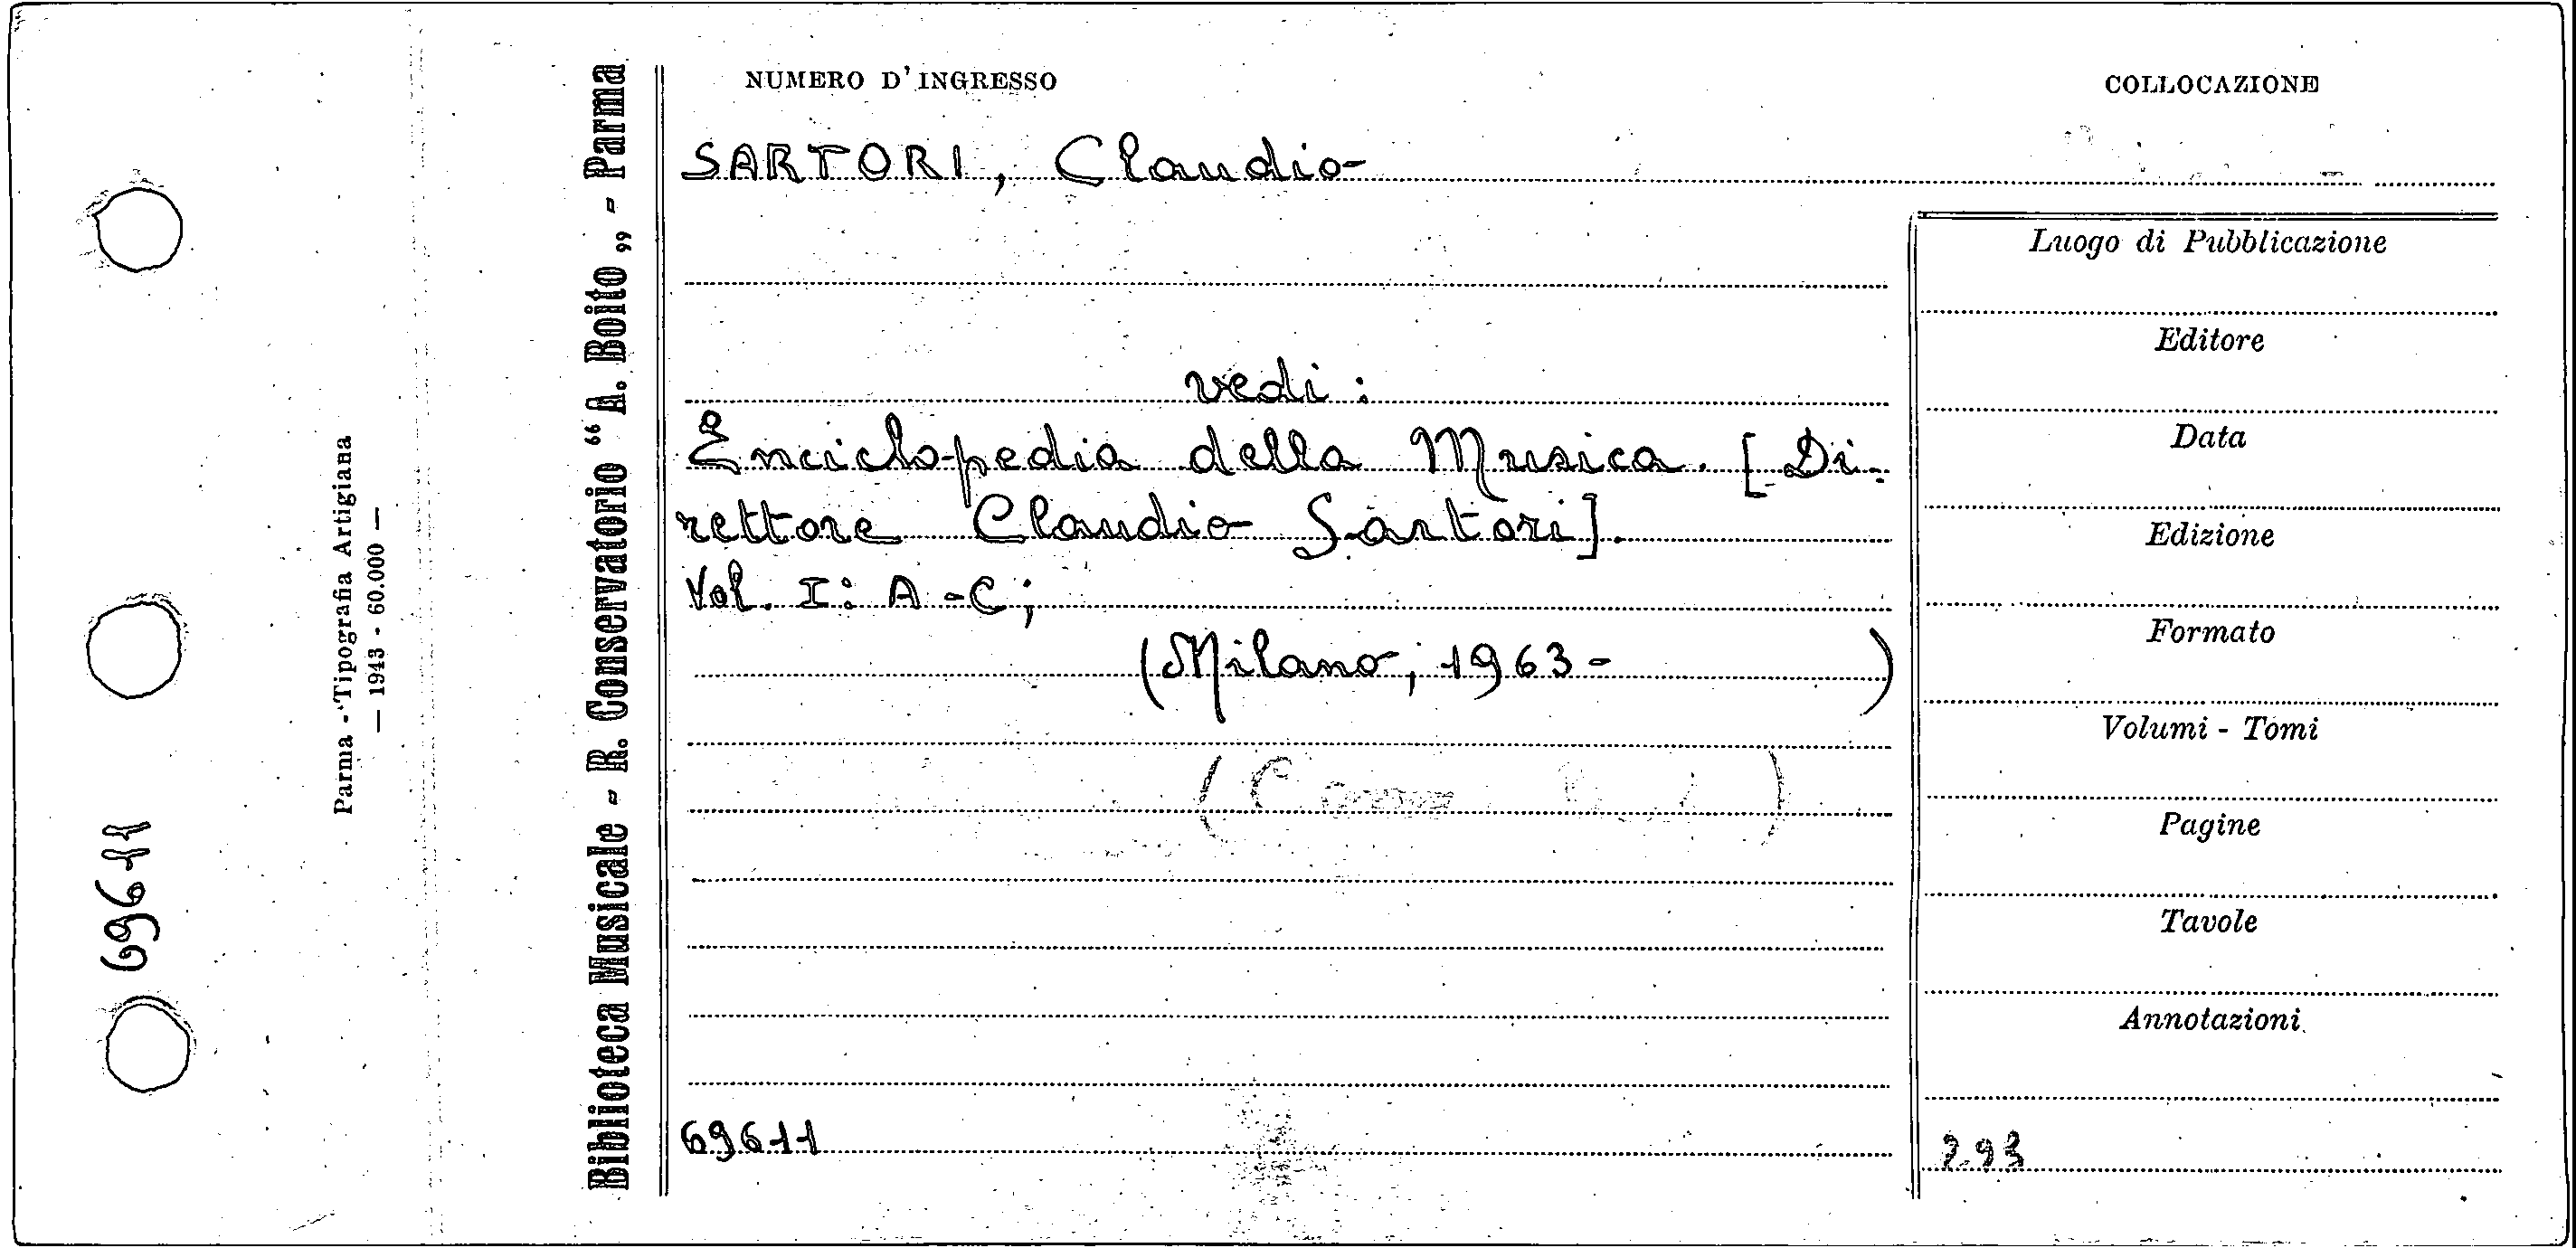 NUMERO D'INGRESSO
COLLOCAZIONE
SARTORI, Claudio
vedi:
Enciclopedia della Musica. [Di-
rettore Claudio Sartori].
Vol. I: A-C;
(Milano, 1963- )
69611
Luogo di Pubblicazione
Editore
Data
Edizione
Formato
Volumi - Tomi
Pagine
Tavole
Annotazioni
293
Biblioteca Musicale - R. Conservatorio “A. Boito„ - Parma
Parma - Tipografia Artigiana
— 1943 - 60.000 —
69611